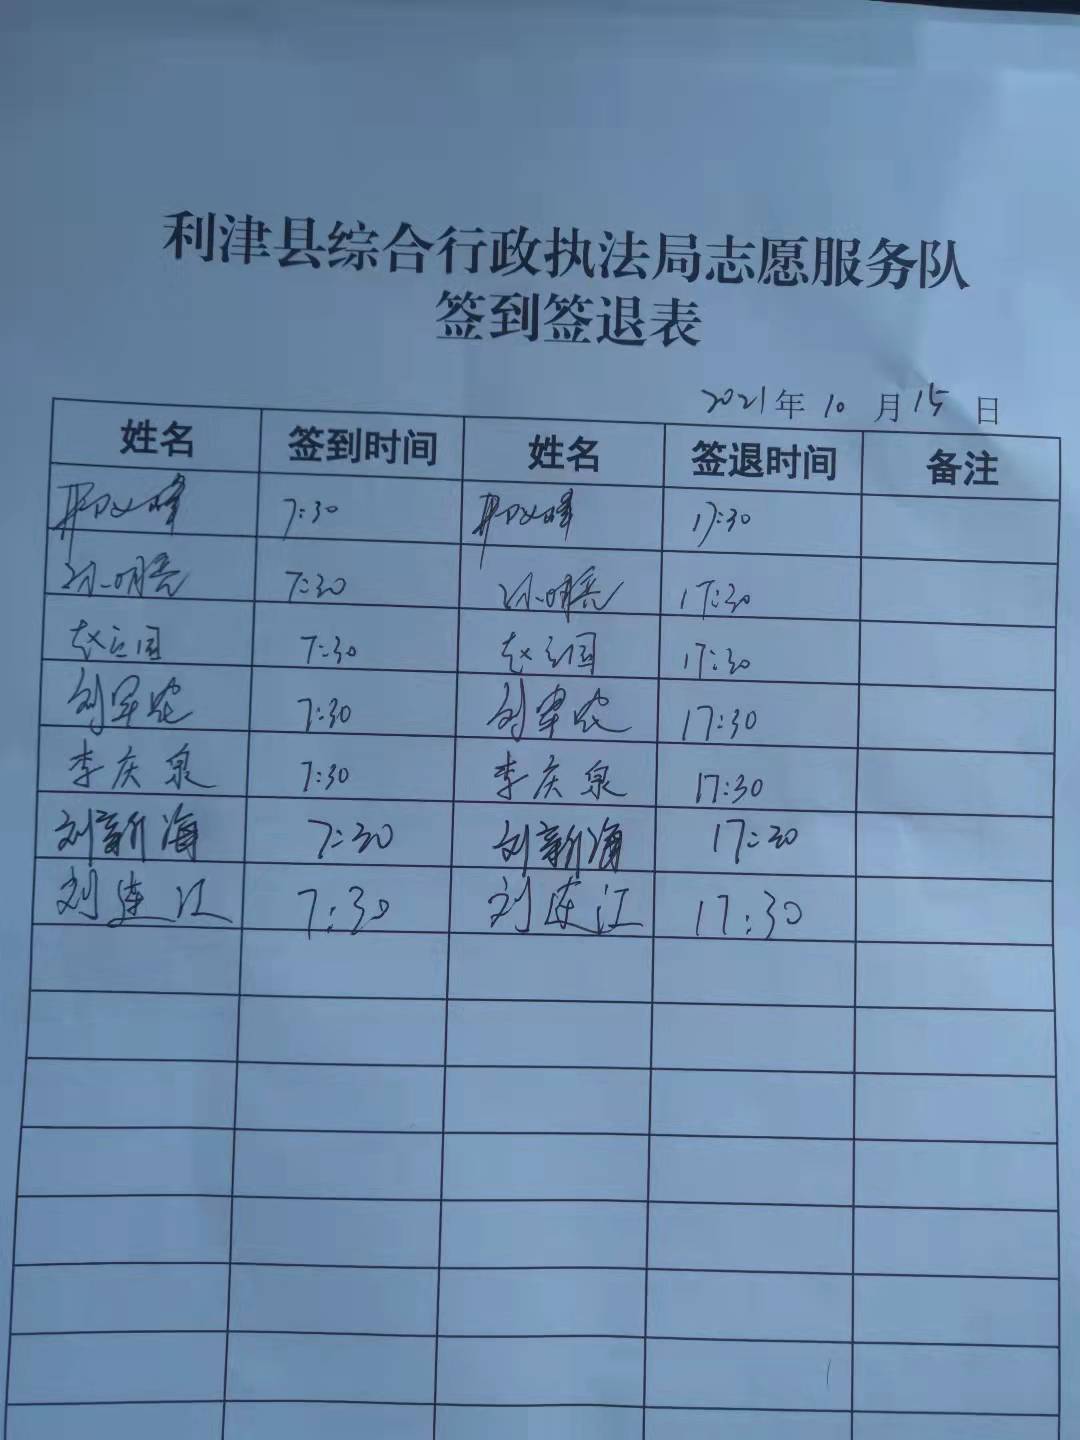 利津县综合行政执法局志愿服务队
签到签退表
2021年10月15日
姓名 签到时间 姓名 签退时间 备注
7:30 17:30
孙明亮 7:30 孙明亮 17:30
赵立国 7:30 赵立国 17:30
刘军 7:30 刘军 17:30
李庆泉 7:30 李庆泉 17:30
刘新海 7:30 刘新海 17:30
刘连江 7:30 刘连江 17:30